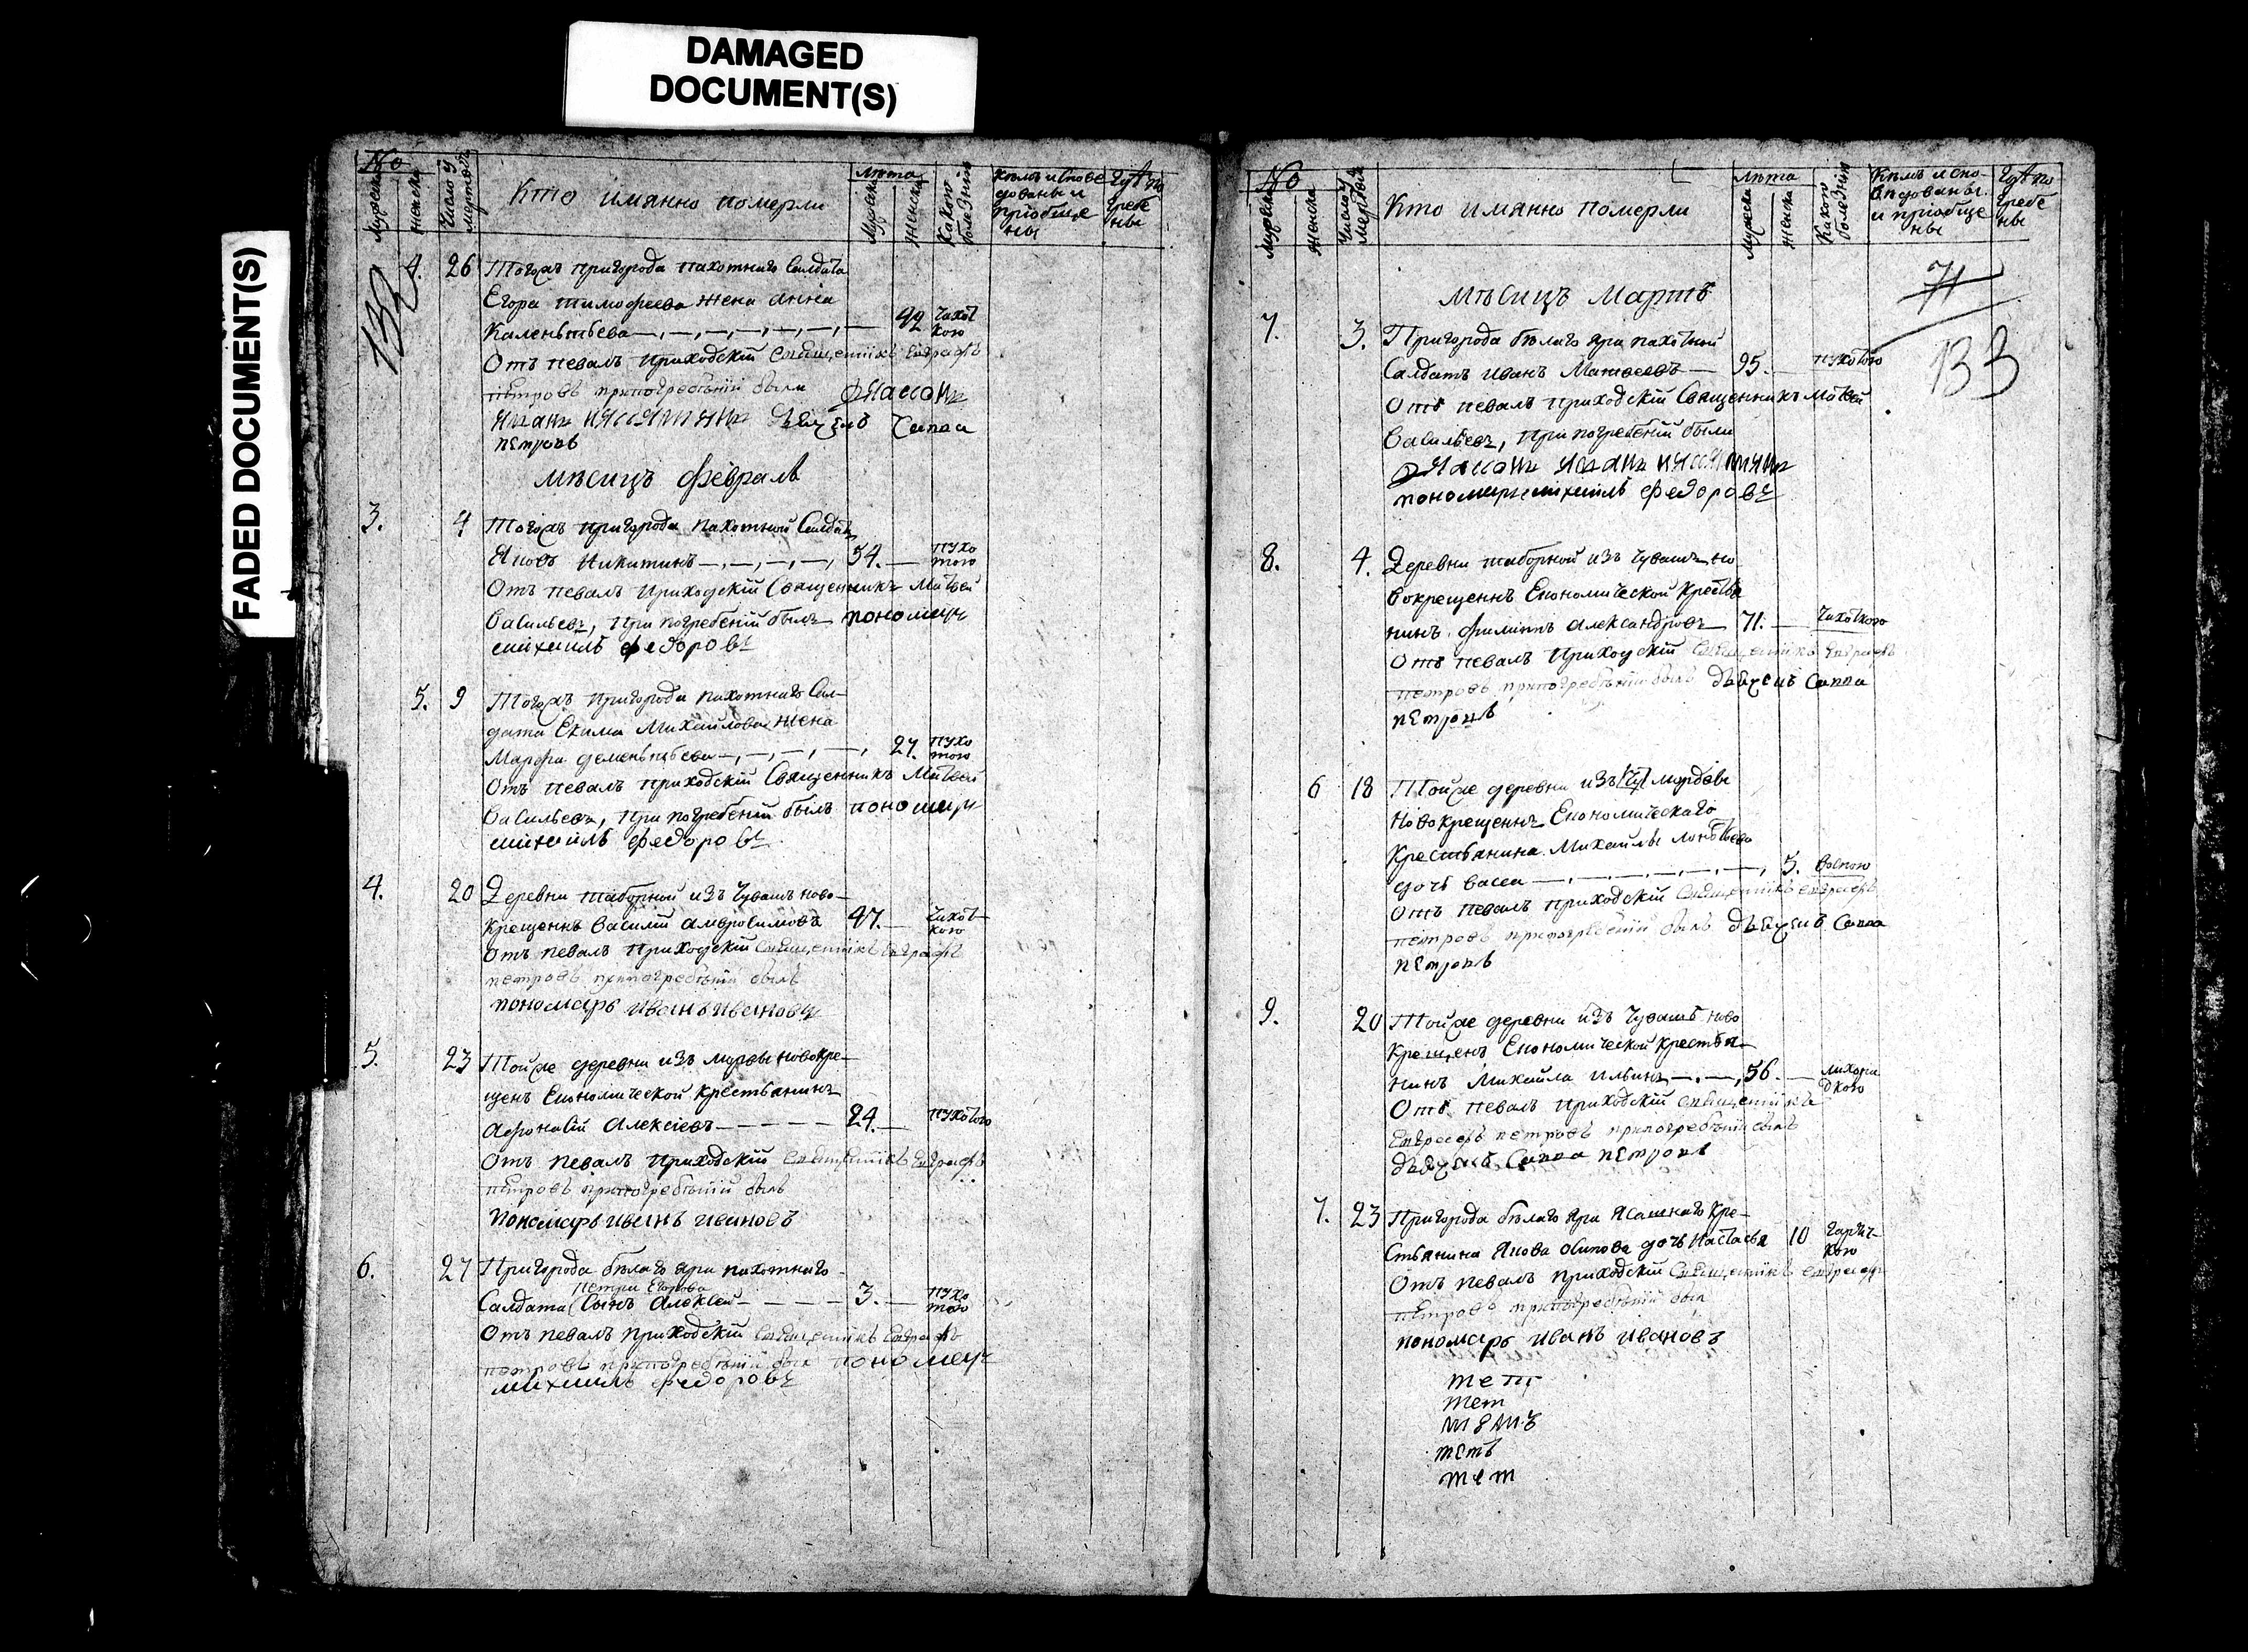 DAMAGED
DOCUMENT(S)
FADED DOCUMENT(S)
№
Мужеска
женска
Число умертвія
Кто имянно померли
лѣта
Мужеска
женска
Какою болезнію
Кѣмъ испове
дованы и
пріобще
ны
Гдѣ по
гребе
ны
132
4. 26 Тогожъ пригорода пахотнаго Салдата
Егора тимофеева жена анна
Каленьтьева 42 Чахот
кою
Отъ певалъ приходскій священникъ Евграфъ
петровъ припогребеніи были
петровъ
мѣсицъ февраль
3. 4 Тогожъ пригорода пахотной Салдатъ
Яковъ Никитинъ 54. пухо
тою
Отъ певалъ приходскій Священникъ Матвей
Васильевъ, при погребеніи былъ пономарь
михаилъ федоровъ
5. 9 Тогожъ пригорода пахотнаго Сал-
дата Екима Михайлова жена
Марфа дементьева 27. пухо
тою
Отъ певалъ приходскій Священникъ Матвей
Васильевъ, при погребеніи былъ пономарь
михаилъ федоровъ
4. 20 Деревни таборной изъ Чувашъ ново-
крещенъ Василій амвросимовъ 47. Чахот-
кою
Отъ певалъ приходскій священникъ Евграфъ
петровъ припогребеніи былъ
пономарь иванъ ивановъ
5. 23 Тойже деревни изъ мордвы новокре-
щенъ Економической крестьянинъ
Афонасій Алексіевъ 24. пухотою
Отъ певалъ приходскій священникъ Евграфъ
петровъ припогребеніи былъ
пономарь иванъ ивановъ
6. 27 Пригорода бѣлаго яра пахотнаго
петра Егорова
Салдата сынъ Алексей 3. пухо
тою
Отъ певалъ приходскій священникъ Евграфъ
петровъ припогребеніи был пономарь
михаилъ федоровъ
№
Мужеска
женска
Число умертвія
Кто имянно померли
лѣта
Мужеска
женска
Какою болезнію
Кѣмъ испо-
ведованы
и пріобще
ны
Гдѣ по
гребе
ны
71
133
мѣсицъ Мартъ
7. 3. Пригорода бѣлаго яра пахотной
Салдатъ иванъ Матвеевъ 95. пухотою
Отъ певалъ приходскій Священникъ Матвей
Васильевъ, при погребеніи были
пономарь михаилъ федоровъ
8. 4. Деревни таборной изъ Чувашъ но
вокрещенъ Економической Крестья
нинъ филиппъ александровъ 71. Чахоткою
Отъ певалъ приходскій священникъ Евграфъ
петровъ припогребеніи былъ дьячекъ Савва
петровъ
6 18 Тойже деревни изъ мордвы
новокрещенъ Економическаго
Крестьянина Михайлы
дочь васса 5. воспою
Отъ певалъ приходскій священникъ евграфъ
петровъ припогребеніи былъ дьячекъ Савва
петровъ
9. 20 Тойже деревни изъ Чувашъ ново
крещенъ Економической крестья-
нинъ Михайла ильинъ 56. лихора
дкою
Отъ певалъ приходскій священникъ
Евграфъ петровъ припогребеніи былъ
дьячекъ Савва петровъ
7. 23 Пригорода бѣлаго яра Ясашнаго Кре-
стьянина Якова осипова дочь настасья 10 горяч-
кою
Отъ певалъ приходскій священникъ евграфъ
петровъ припогребеніи был
пономарь иванъ ивановъ